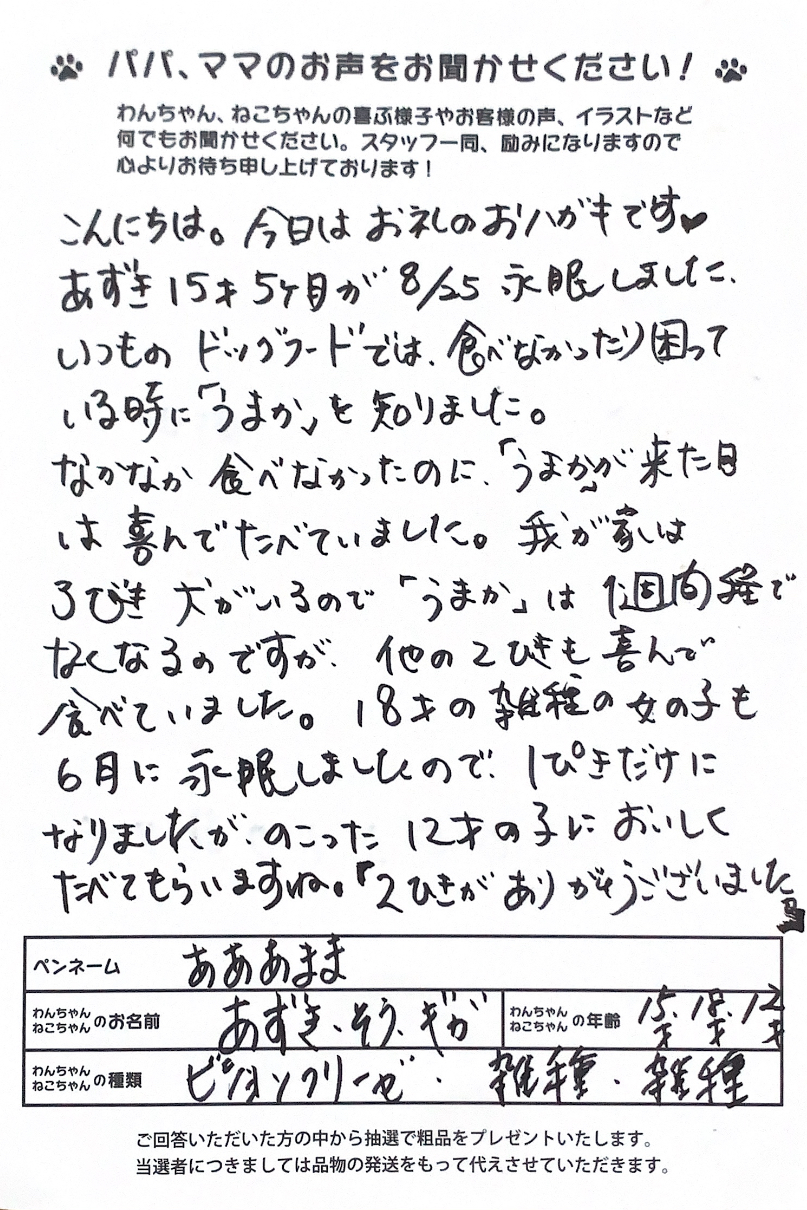 パパ、ママのお声をお聞かせください!
わんちゃん、ねこちゃんの喜ぶ様子やお客様の声、イラストなど
何でもお聞かせください。スタッフ一同、励みになりますので
心よりお待ち申し上げております!
こんにちは。今日はお礼のおハガキです♥
あずき15才5ヶ月が8/25永眠しました、
いつものドッグフードでは、食べなかったり困って
いる時に「うまか」を知りました。
なかなか食べなかったのに、「うまか」が来た日
は喜んでたべていました。我が家は
3びき犬がいるので「うまか」は1週間程で
なくなるのですが、他の2ひきも喜んで
食べていました。18才の雑種の女の子も
6月に永眠しましたので、1ぴきだけに
なりましたが、のこった12才の子においしく
たべてもらいますね。「2ひきがありがとうございました」
ペンネーム
あああまま
わんちゃん
ねこちゃん のお名前
あずき、そう、ぎが
わんちゃん
ねこちゃん の年齢
15才、18才、12才
わんちゃん
ねこちゃん の種類
ビションフリーゼ・雑種・雑種
ご回答いただいた方の中から抽選で粗品をプレゼントいたします。
当選者につきましては品物の発送をもって代えさせていただきます。